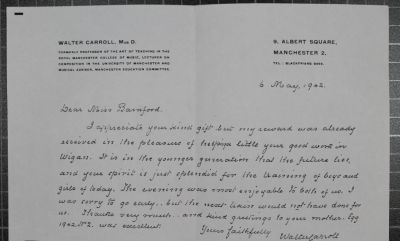 WALTER CARROLL, Mus D.
FORMERLY PROFESSOR OF THE ART OF TEACHING IN THE
ROYAL MANCHESTER COLLEGE OF MUSIC, LECTURER ON
COMPOSITION IN THE UNIVERSITY OF MANCHESTER AND
MUSICAL ADVISER, MANCHESTER EDUCATION COMMITTEE.
9, ALBERT SQUARE,
MANCHESTER 2.
TEL: BLACKFRIARS
6 May, 1942.
Dear Miss Bamford.
I appreciate your kind gift but my reward was already
received in the pleasure of helping a little your good work in
Wigan. It is in the younger generation that the future lies,
and your spirit is just splendid for the training of boys and
girls of today. The evening was most enjoyable to both of us. I
was sorry to go early.. but the next train would not have done for
us. Thanks very much.. and kind greetings to your mother. Egg
1942 No 2. was excellent.
Yours faithfully
Walter Carroll